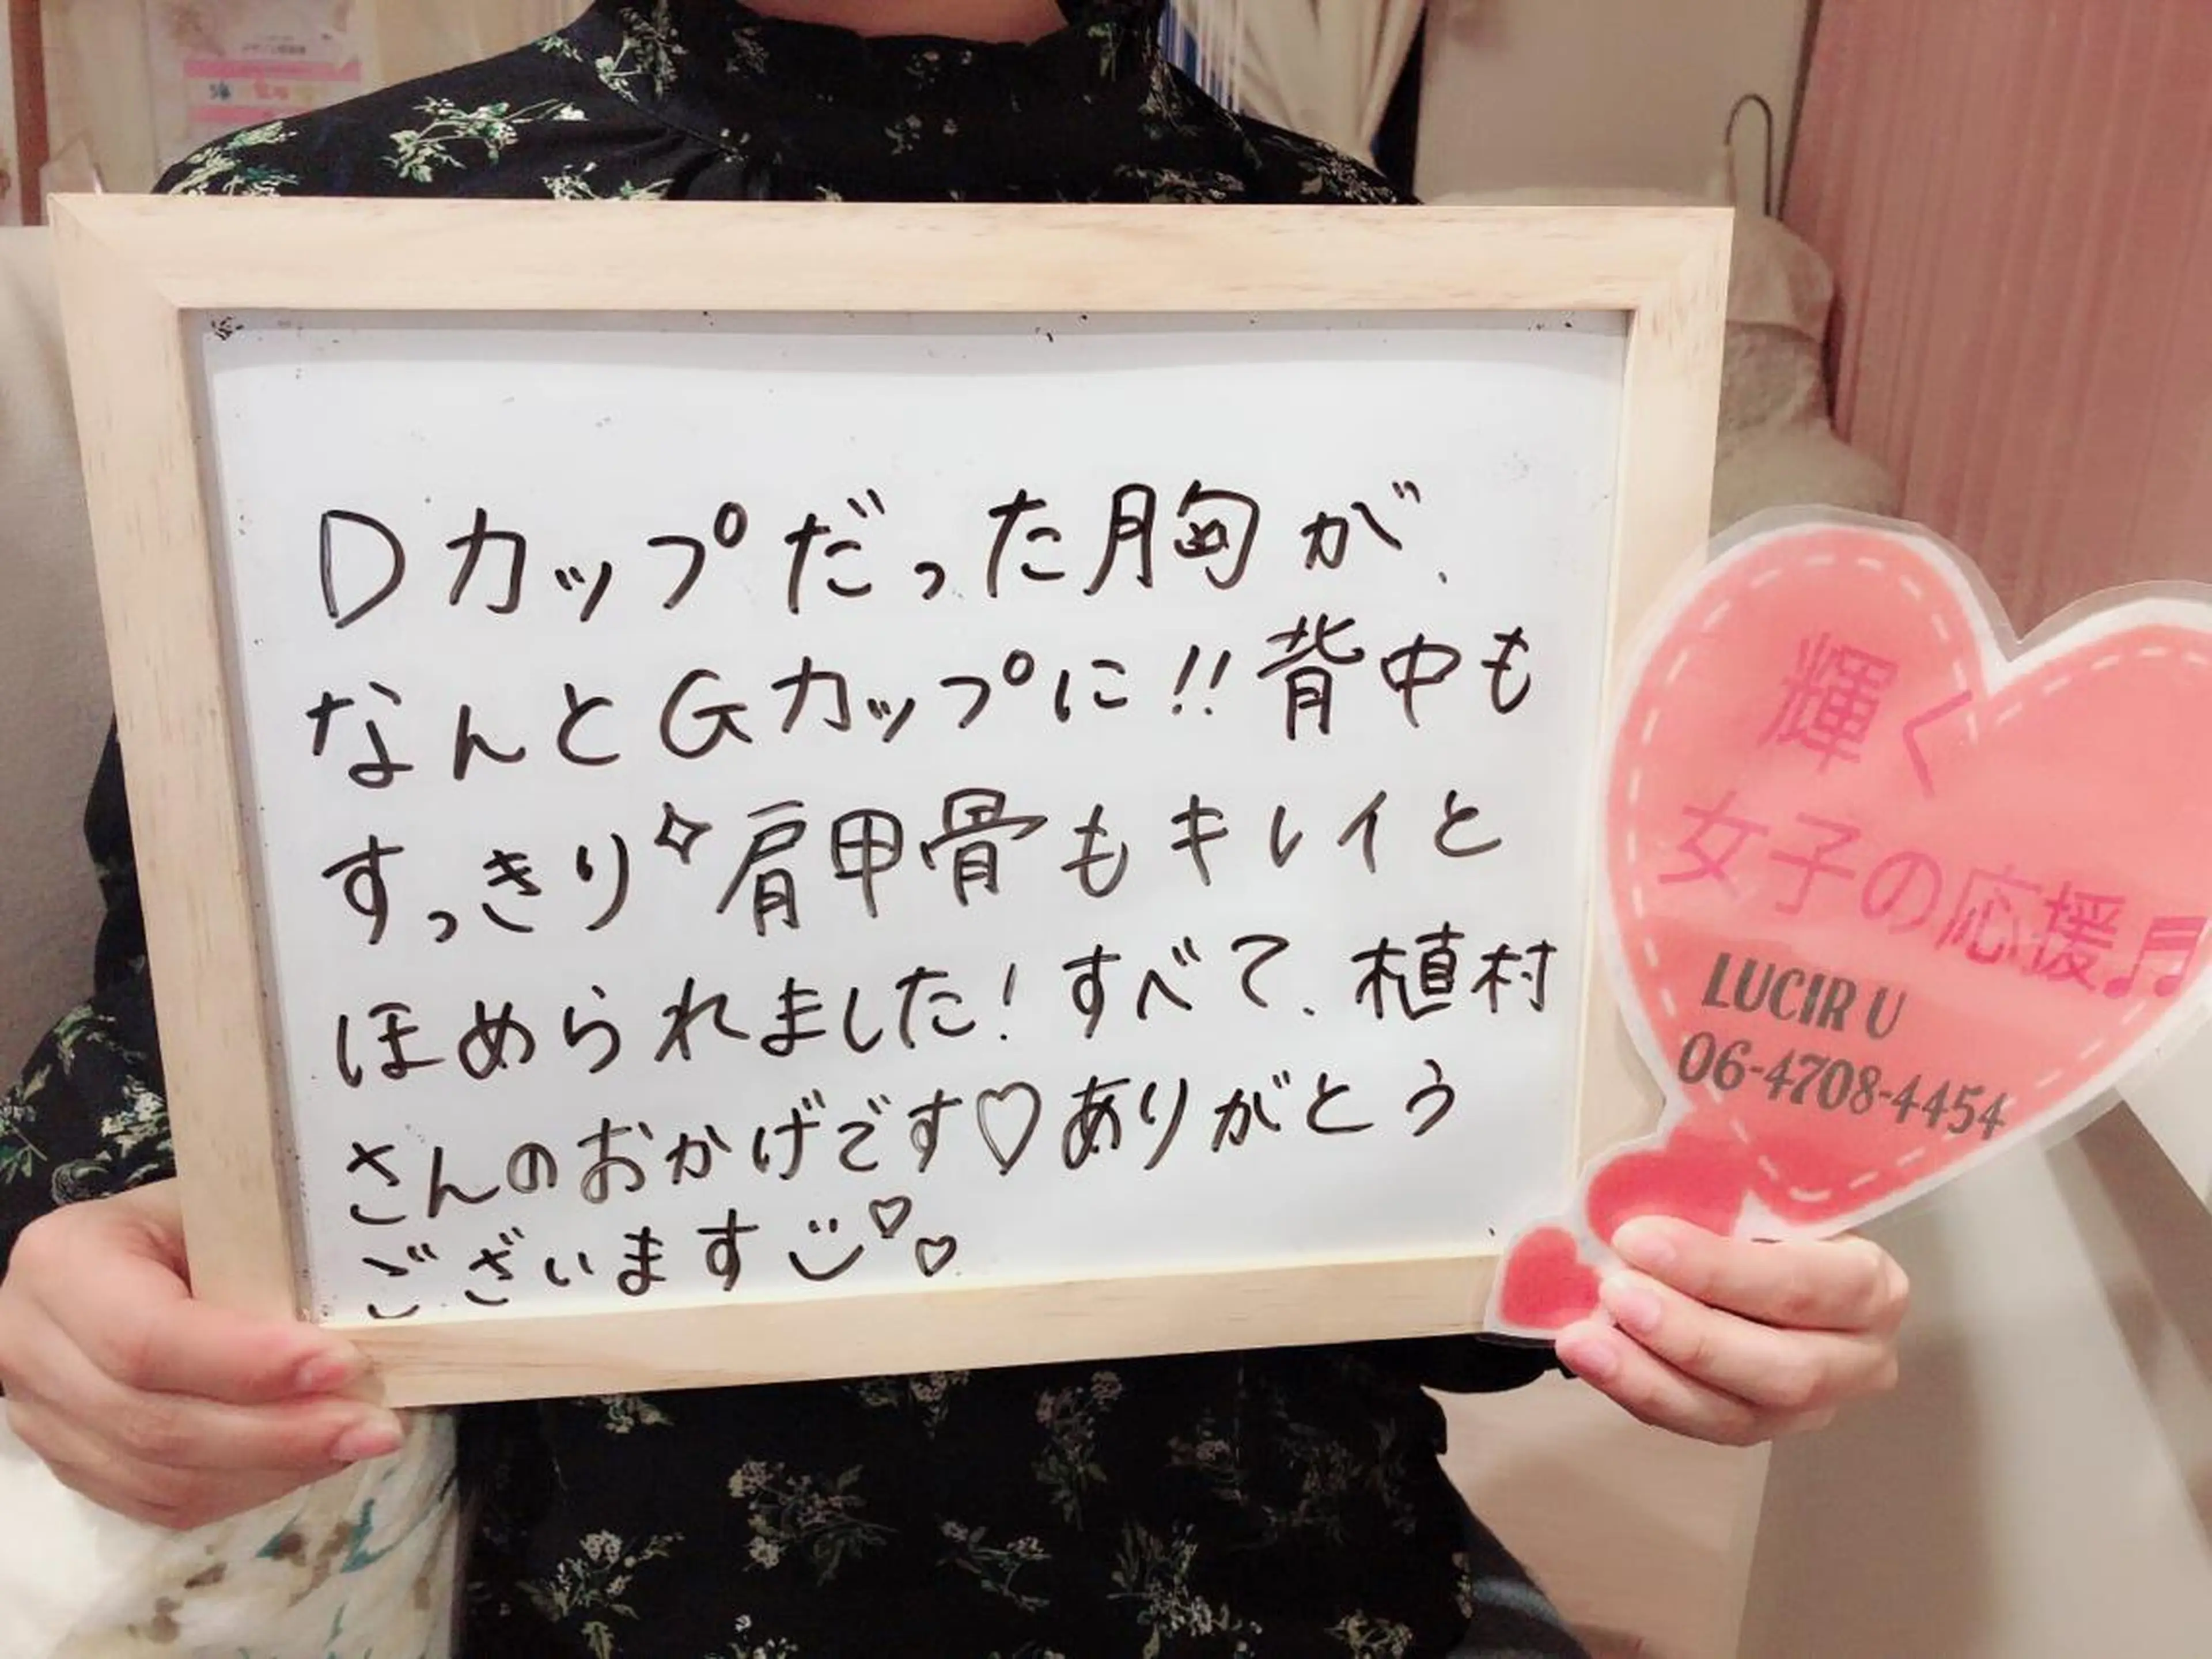 Dカップだった胸が、
なんとGカップに!!背中も
すっきり✧肩甲骨もキレイと
ほめられました!すべて、植村
さんのおかげです♡ありがとう
ございます
輝く
女子の応援♬
LUCIR U
06-4708-4454